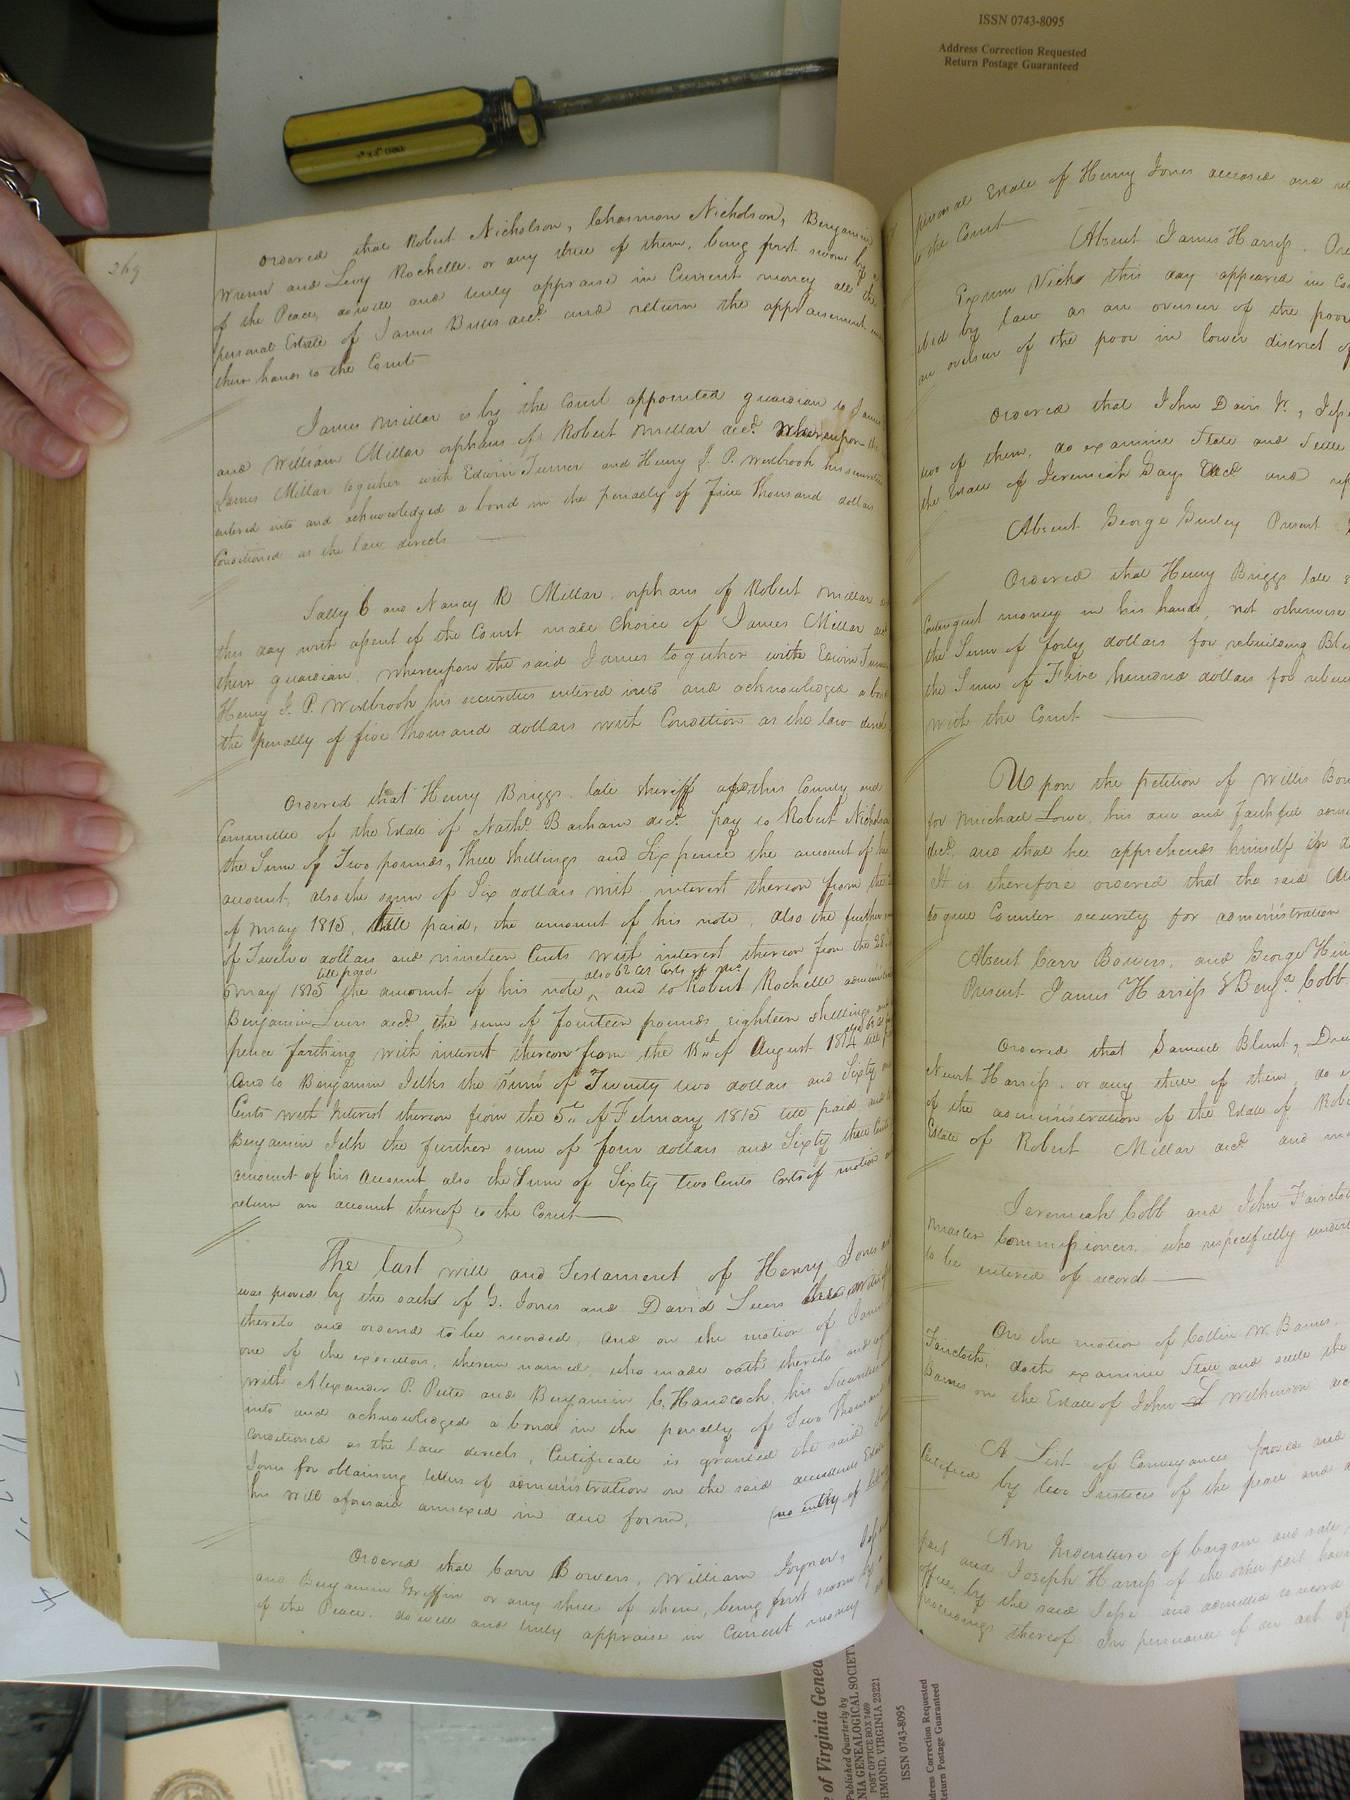 ISSN 0743-8095
Address Correction Requested
Return Postage Guaranteed
269
Ordered that Robert Nicholson, Chasmon Nicholson, Benjamin
Wrenn and Levy Rochelle or any three of them, being first sworn
of the Peace, do well and truly appraise in Current money all the
personal Estate of James decd. and return the appraisement
their hands to the Court
James Millar is by the Court appointed guardian to James
and William Millar orphans of Robert Millar decd. Whereupon the
James Millar together with Edwin Turner and Henry J. P. Westbrook his securities
entered into and acknowledged a bond in the penalty of five Thousand dollars
Conditioned as the law directs
Sally C and Nancy R Millar orphans of Robert Millar
this day with assent of the Court made Choice of James Millar as
their guardian, whereupon the said James together with Edwin Turner
Henry J. P. Westbrook his securities entered into and acknowledged a bond
the penalty of five thousand dollars with Condition as the law directs
Ordered that Henry Briggs late sheriff of this County and
Committee of the Estate of Nathl. Barham decd. pay to Robert Nicholson
the Sum of Two pounds, Three Shillings and Six pence the amount of his
account, also the sum of Six dollars with interest thereon from the
of May 1815, till paid, the amount of his note, also the further
of Twelve dollars and nineteen Cents with interest thereon from the 28
till paid also 62 Cts Costs of Mo.
May 1815 the amount of his note, and to Robert Rochelle
Benjamin Lewis decd. the sum of fourteen pounds eighteen shillings
pence farthing with interest thereon from the 15th of August 1814 till
And to Benjamin Jelks the Sum of Twenty two dollars and Sixty
Cents with Interest thereon from the 5th of February 1815 till paid and
Benjamin Jelks the further sum of four dollars and Sixty three Cents
amount of his Account also the Sum of Sixty two Cents Costs of motion
return an account thereof to the Court
The last will and Testament of Henry Jones
was proved by the oaths of G. Jones and David Lewis
thereto and ordered to be recorded, and on the motion of
one of the executors, therein named, who made oath thereto and
with Alexander P. Peete and Benjamin C. Handcock, his Securities
into and acknowledged a bond in the penalty of Two Thousand
Conditioned as the law directs, Certificate is granted the said
Jones for obtaining letters of administration on the said decedents Estate
his will aforesaid annexed in due form.
(no entry of
Ordered that Carr Bowers, William Joyner,
and Benjamin Griffin or any three of them, being first sworn
of the Peace, do well and truly appraise in Current money
personal Estate of Henry Jones deceased and
to the Court
Absent James Harriss.
Exum Vicks this day appeared in
by law as an overseer of the poor
an overseer of the poor in lower district of
Ordered that John Davis
two of them, do examine State and Settle
the Estate of Jeremiah Days Decd. and
Absent George Gurley Present
Ordered that Henry Briggs late
Contingent money in his hands, not otherwise
the Sum of forty dollars for rebuilding
the Sum of Five hundred dollars for
with the Court
Upon the petition of Willis
for Michael Lowe, his due and faithful
decd., and that he apprehends himself in
It is therefore ordered that the said
to give Counter security for administration
Absent Carr Bowers, and George
Present James Harriss & Benja. Cobb
Ordered that Samuel Blunt,
Newit Harriss or any three of them, do
of the administration of the Estate of
Estate of Robert Millar decd. and
Jeremiah Cobb and John
Master Commissioners, who respectfully
to be entered of record
On the motion of Collin W. Barnes,
Faircloth, doth examine State and settle the
Barnes on the Estate of John Wilkinson
A List of Conveyances proved and
Certified by two Justices of the peace and
An Indenture of bargain and sale
part and Joseph Harriss of the other part
office, by the said Jesse and admitted to record
proceedings thereof In pursuance of an act of
of Virginia
Published Quarterly by
GENEALOGICAL SOCIETY
POST OFFICE BOX 7469
VIRGINIA 23221
ISSN 0743-8095
Address Correction Requested
Return Postage Guaranteed